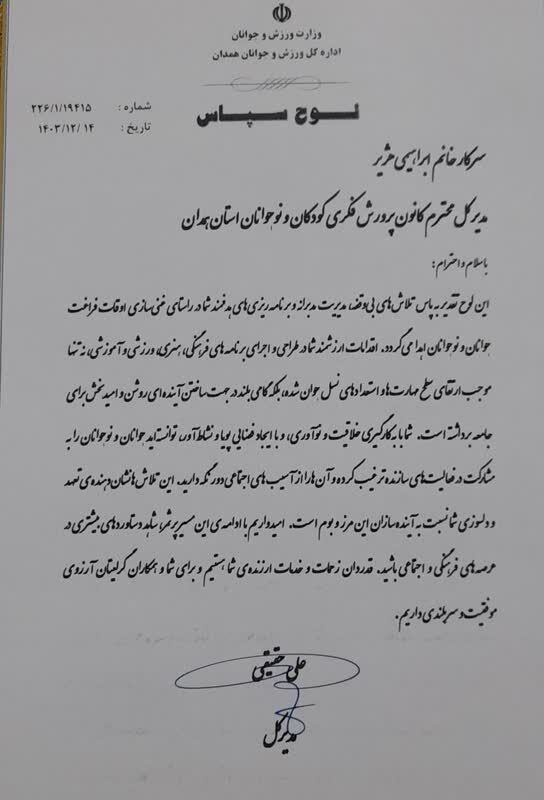 وزارت ورزش و جوانان
اداره کل ورزش و جوانان همدان
شماره : ۲۲۶/۱/۱۹۴۱۵
تاریخ : ۱۴۰۳/۱۲/۱۴
لوح سپاس
سرکار خانم ابراهیمی هژیر
مدیرکل محترم کانون پرورش فکری کودکان و نوجوانان استان همدان
باسلام و احترام؛
این لوح تقدیر به پاس تلاش های بی وقفه، مدیریت مدبرانه و برنامه ریزی های هدفمند شما در راستای غنی سازی اوقات فراغت
جوانان و نوجوانان اهدا می گردد. اقدامات ارزشمند شما در طراحی و اجرای برنامه های فرهنگی، هنری، ورزشی و آموزشی، نه تنها
موجب ارتقای سطح مهارت ها و استعدادهای نسل جوان شده، بلکه گامی بلند در جهت ساختن آینده ای روشن و امیدبخش برای
جامعه برداشته است. شما با به کارگیری خلاقیت و نوآوری، و با ایجاد فضایی پویا و نشاط آور، توانسته اید جوانان و نوجوانان را به
مشارکت در فعالیت های سازنده ترغیب کرده و آن ها را از آسیب های اجتماعی دور نگه دارید. این تلاش ها نشان دهنده ی تعهد
و دلسوزی شما نسبت به آینده سازان این مرز و بوم است. امیدواریم با ادامه ی این مسیر پرثمر، شاهد دستاوردهای بیشتری در
عرصه های فرهنگی و اجتماعی باشید. قدردان زحمات و خدمات ارزنده ی شما هستیم و برای شما و همکاران گرامیتان آرزوی
موفقیت و سربلندی داریم.
علی حقیقی
مدیرکل